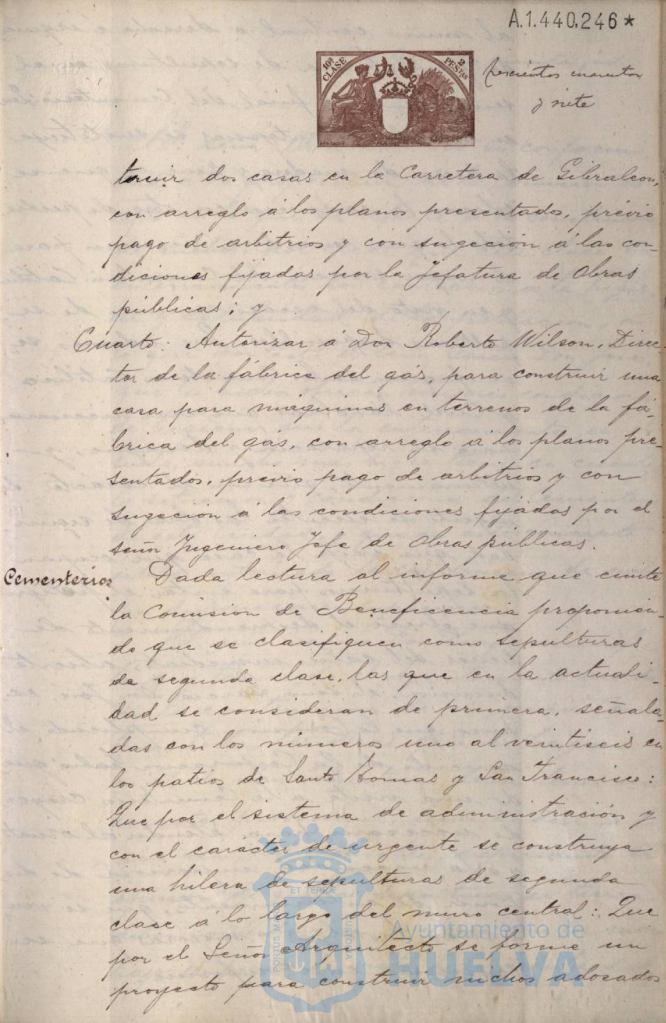 A.1.440,246*
10ª CLASE
2 PESETAS
trescientos cuarenta
y siete
truir dos casas en la Carretera de Gibraleon,
con arreglo á los planos presentados, prévio
pago de arbitrios y con sugeción á las con-
diciones fijadas por la Jefatura de Obras
públicas; y
Cuarto: Autorizar á Don Roberto Wilson, Direc-
tor de la fábrica del gas, para construir una
casa para máquinas en terrenos de la fá-
brica del gas, con arreglo á los planos pre-
sentados, prévio pago de arbitrios y con
sugeción á las condiciones fijadas por el
señor Ingeniero Jefe de Obras públicas.
Cementerios
Dada lectura al informe que emite
la Comision de Beneficencia proponien-
do que se clasifiquen como sepulturas
de segunda clase, las que en la actuali-
dad se consideran de primera, señala-
das con los números uno al veintiseis en
los patios de Santo Tomas y San Francisco:
Que por el sistema de administración y
con el carácter de urgente se construya
una hilera de sepulturas de segunda
clase á lo largo del muro central: Que
por el Señor Arquitecto se forme un
proyecto para construir nichos adosados
Ayuntamiento de
HUELVA